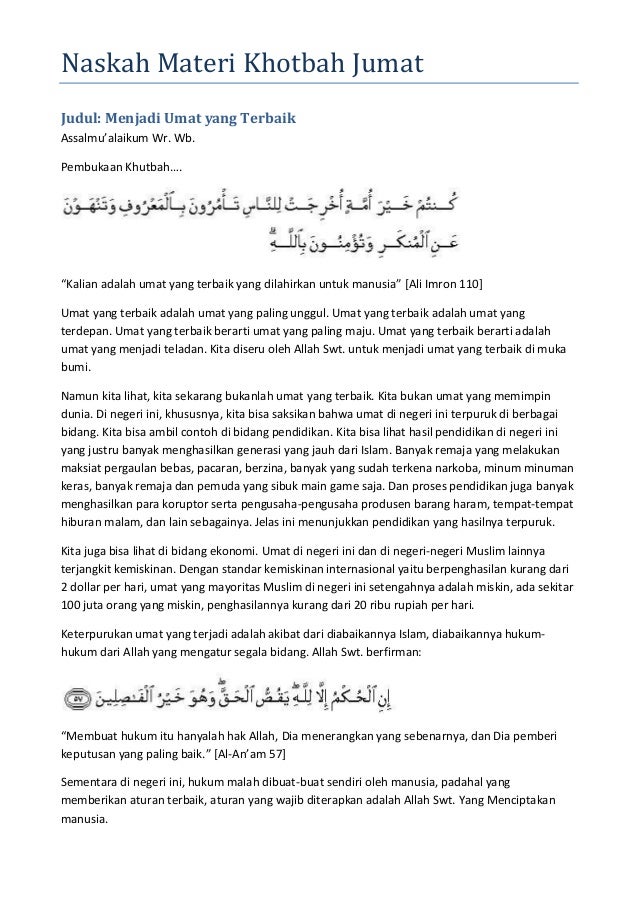 Naskah Materi Khotbah Jumat
Judul: Menjadi Umat yang Terbaik
Assalmu’alaikum Wr. Wb.
Pembukaan Khutbah....
كُنتُمْ خَيْرَ أُمَّةٍ أُخْرِجَتْ لِلنَّاسِ تَأْمُرُونَ بِٱلْمَعْرُوفِ وَتَنْهَوْنَ
عَنِ ٱلْمُنكَرِ وَتُؤْمِنُونَ بِٱللَّهِ ۗ
“Kalian adalah umat yang terbaik yang dilahirkan untuk manusia” [Ali Imron 110]
Umat yang terbaik adalah umat yang paling unggul. Umat yang terbaik adalah umat yang
terdepan. Umat yang terbaik berarti umat yang paling maju. Umat yang terbaik berarti adalah
umat yang menjadi teladan. Kita diseru oleh Allah Swt. untuk menjadi umat yang terbaik di muka
bumi.
Namun kita lihat, kita sekarang bukanlah umat yang terbaik. Kita bukan umat yang memimpin
dunia. Di negeri ini, khususnya, kita bisa saksikan bahwa umat di negeri ini terpuruk di berbagai
bidang. Kita bisa ambil contoh di bidang pendidikan. Kita bisa lihat hasil pendidikan di negeri ini
yang justru banyak menghasilkan generasi yang jauh dari Islam. Banyak remaja yang melakukan
maksiat pergaulan bebas, pacaran, berzina, banyak yang sudah terkena narkoba, minum minuman
keras, banyak remaja dan pemuda yang sibuk main game saja. Dan proses pendidikan juga banyak
menghasilkan para koruptor serta pengusaha-pengusaha produsen barang haram, tempat-tempat
hiburan malam, dan lain sebagainya. Jelas ini menunjukkan pendidikan yang hasilnya terpuruk.
Kita juga bisa lihat di bidang ekonomi. Umat di negeri ini dan di negeri-negeri Muslim lainnya
terjangkit kemiskinan. Dengan standar kemiskinan internasional yaitu berpenghasilan kurang dari
2 dollar per hari, umat yang mayoritas Muslim di negeri ini setengahnya adalah miskin, ada sekitar
100 juta orang yang miskin, penghasilannya kurang dari 20 ribu rupiah per hari.
Keterpurukan umat yang terjadi adalah akibat dari diabaikannya Islam, diabaikannya hukum-
hukum dari Allah yang mengatur segala bidang. Allah Swt. berfirman:
إِنِ ٱلْحُكْمُ إِلَّا لِلَّهِ ۖ يَقُصُّ ٱلْحَقَّ ۖ وَهُوَ خَيْرُ ٱلْفَـٰصِلِينَ ٥٧
“Membuat hukum itu hanyalah hak Allah, Dia menerangkan yang sebenarnya, dan Dia pemberi
keputusan yang paling baik.” [Al-An’am 57]
Sementara di negeri ini, hukum malah dibuat-buat sendiri oleh manusia, padahal yang
memberikan aturan terbaik, aturan yang wajib diterapkan adalah Allah Swt. Yang Menciptakan
manusia.